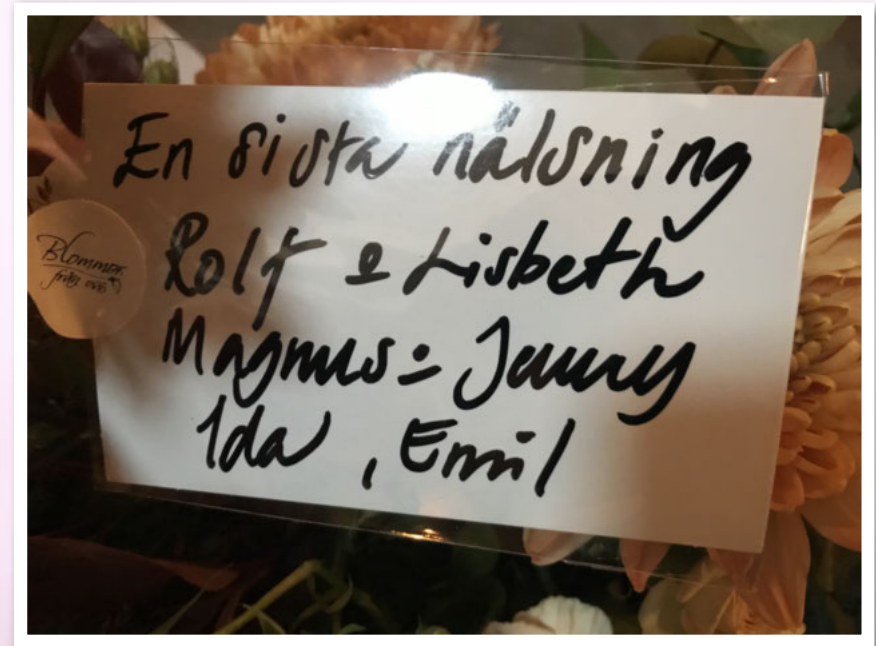 En sista hälsning
Rolf o Lisbeth
Magnus o Jenny
Ida, Emil
Blommor
från ovo